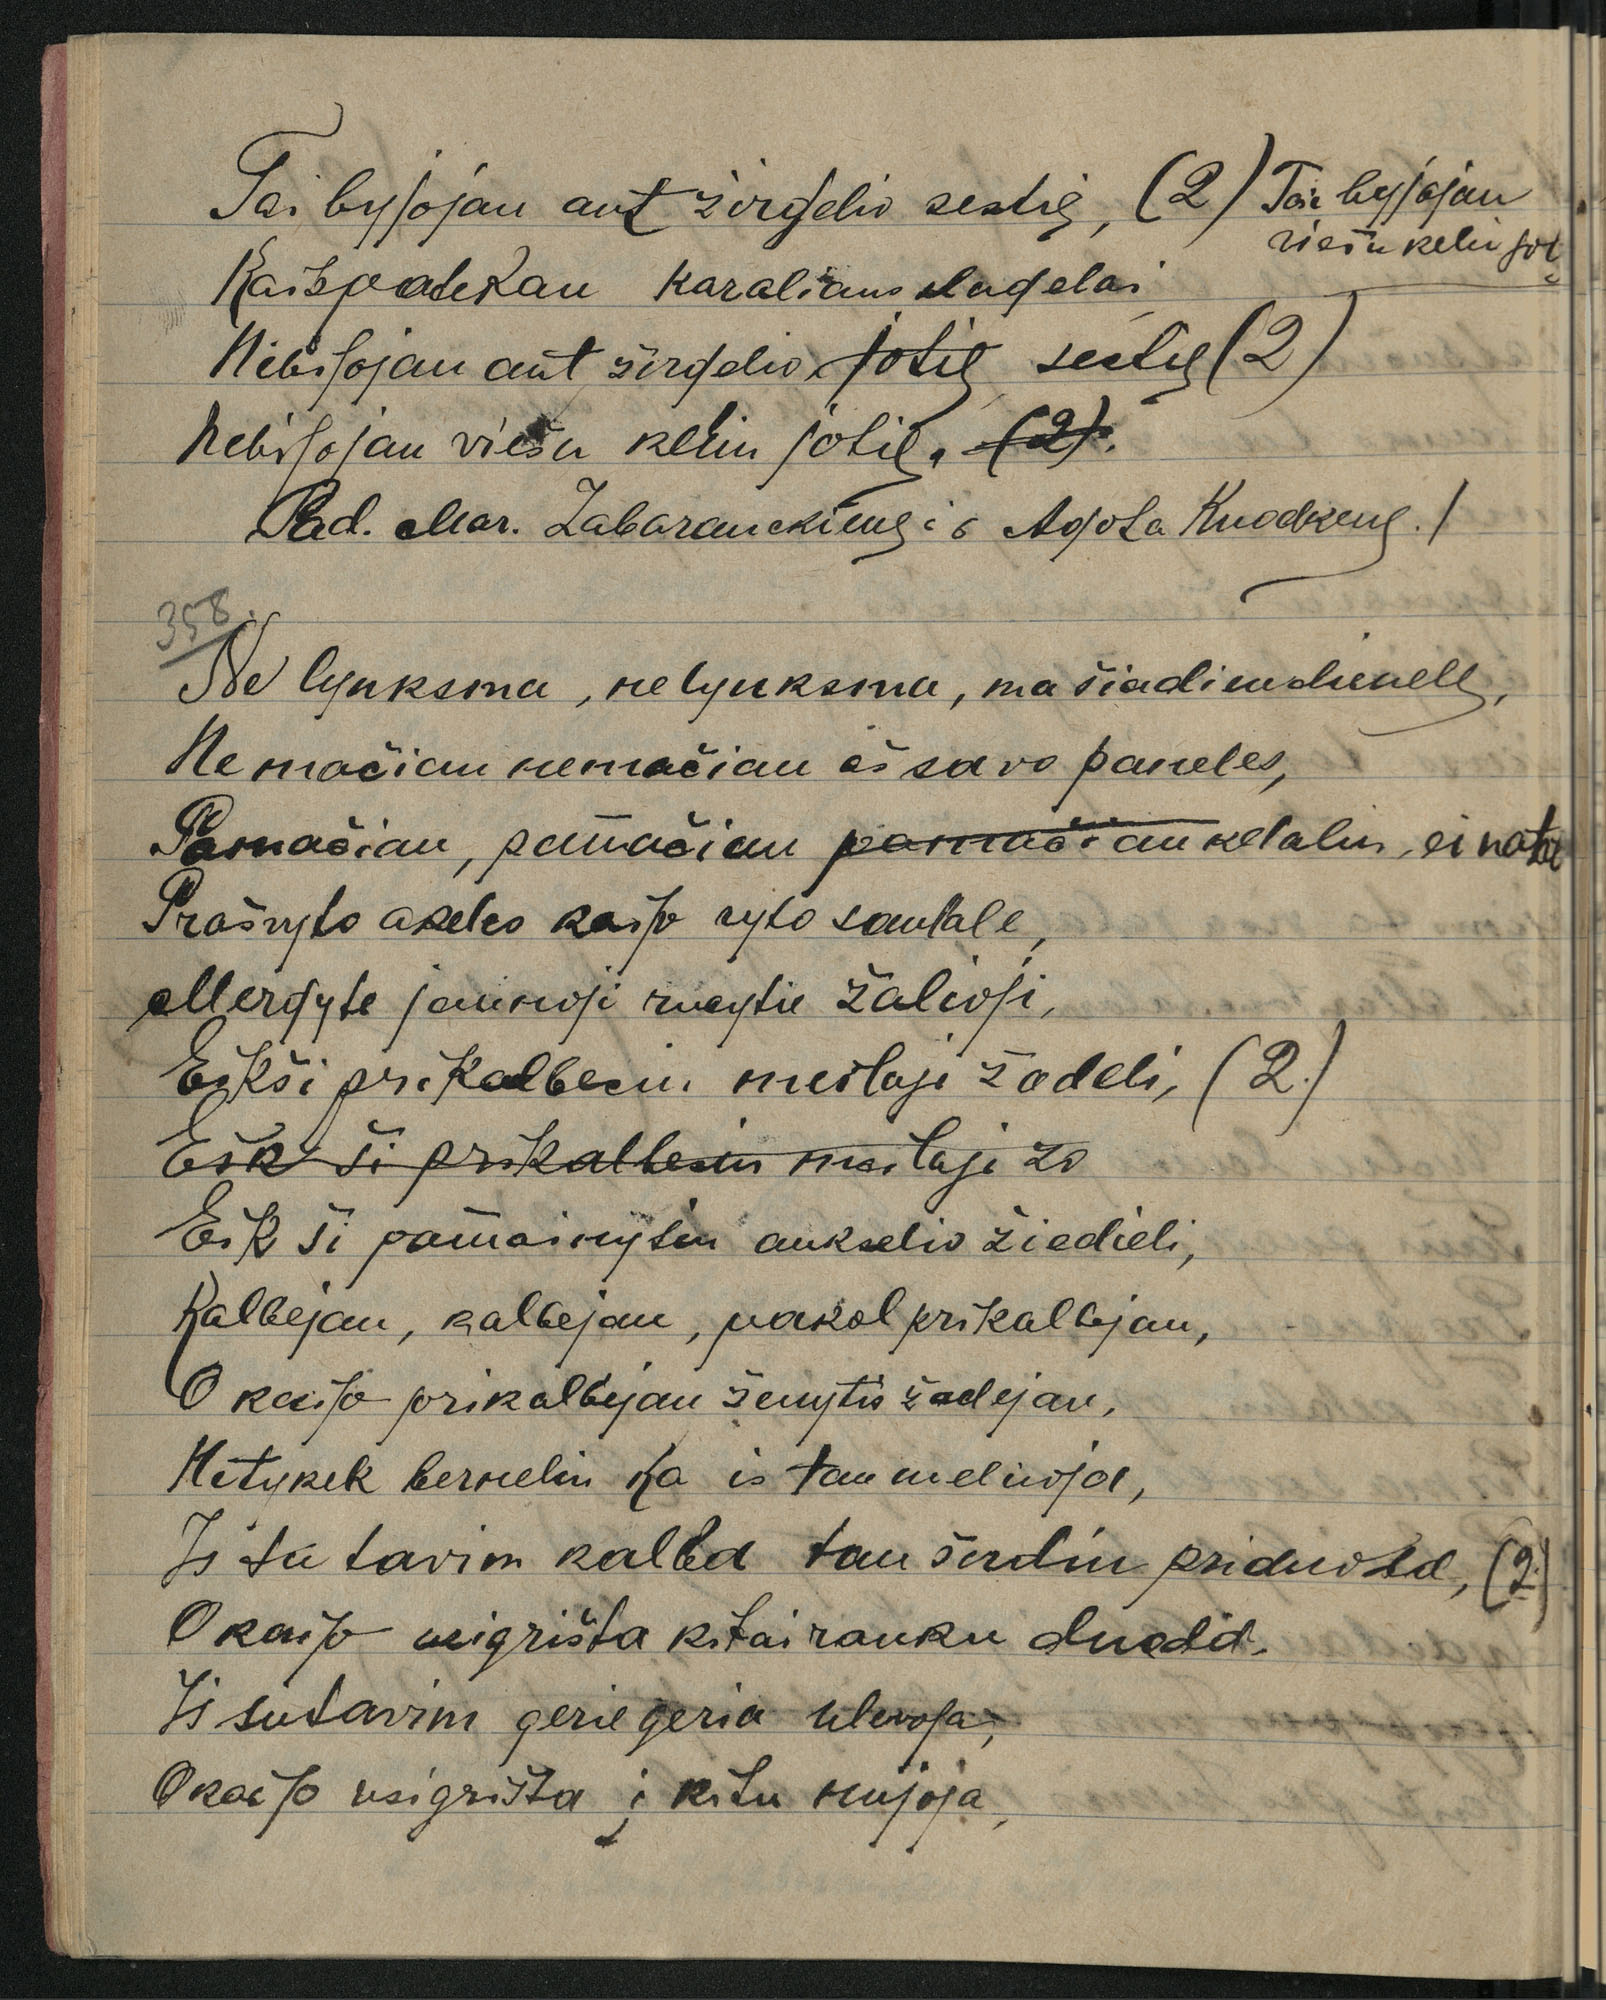 Tai byjojau ant žirgelio sestię, (2) Tai byjojau
viešu keliu jot
Kaip patekau karaliaus slugelai
Nebijojau ant žirgelio jotię sestię (2)
Nebijojau viešu keliu jotię. (2).
Pad. Mar. Zabarauckienę ir Agota Knodkenę. /
358.
Ne lynksma, nelynksma, ma šiadien dienelę,
Nemačiau nemačiau aš savo paneles,
Pamačiau, pamačiau pamačiau ketalin, einata
Prašvyto akeles kaip ryto sautale,
Mergyte jaunoji rucytie žalioji,
Eikši prikalbesiu meilaji žodeli, (2.)
Eik ši prikalbesiu meilaji žo
Eik ši pamainysiu aukselio žiedieli,
Kalbejau, kalbejau, pakol prikalbejau,
O kaip prikalbejau ženytis žadejau,
Netykek berneliu ka is tau meluoja,
Is su tavim kalba tau širdin priduoda, (2.)
O kaip usigrišta kitai ranku duoda.
Is sutavim gerie geria uliavoja,
O kaip usigrišta į kitu mujoja,